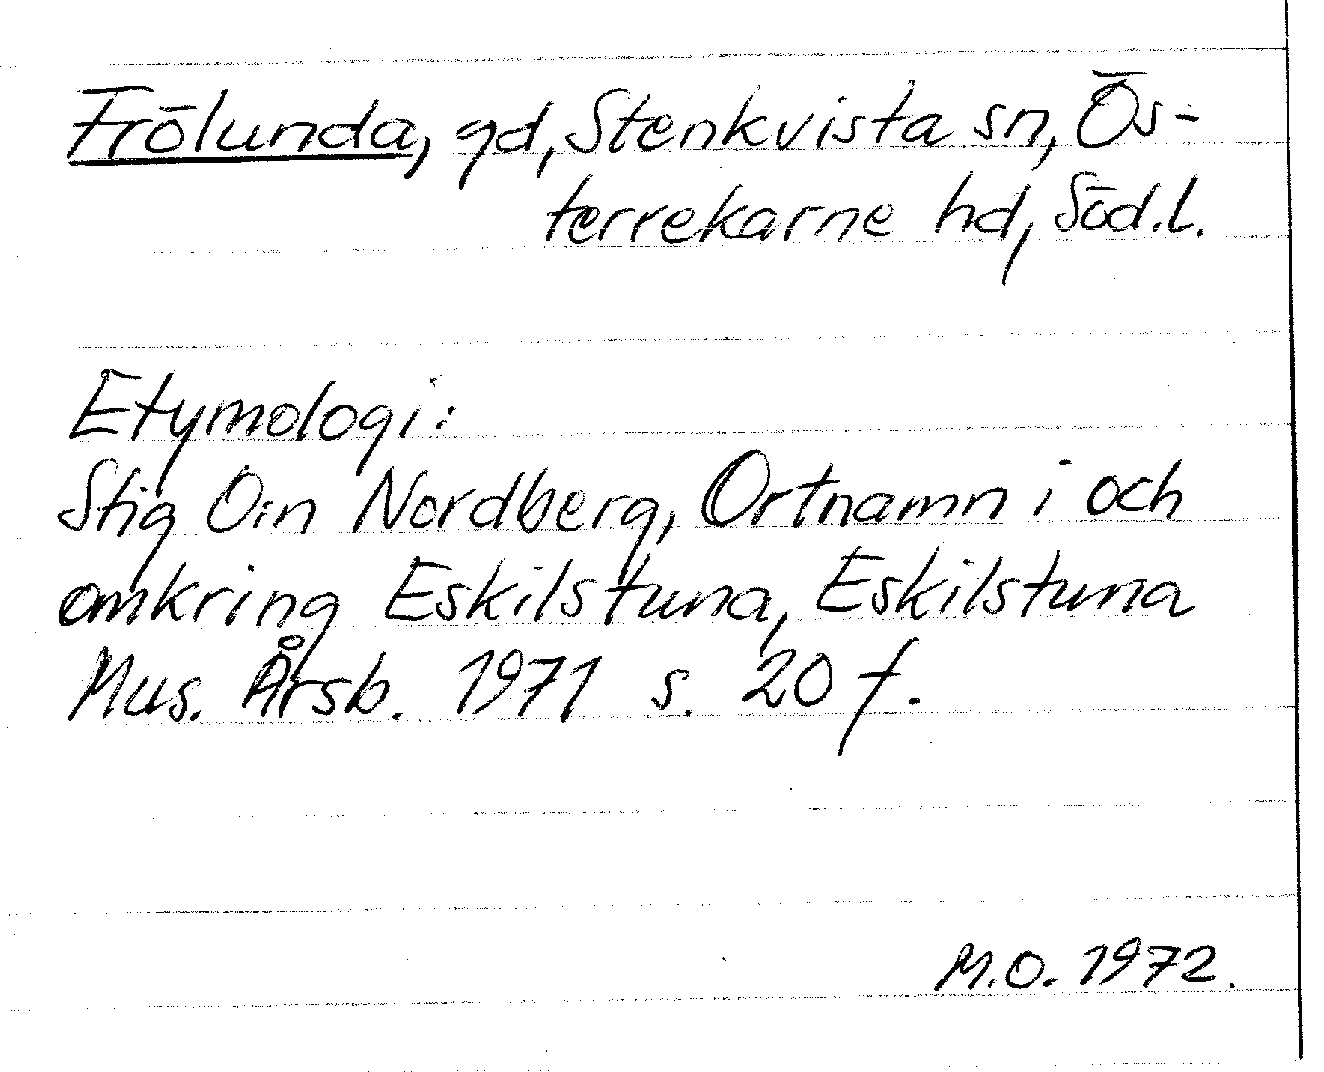 Frölunda, gd, Stenkvista sn, Ös-
terrekarne hd, Söd.l.
Etymologi:
Stig O:n Nordberg, Ortnamn i och
omkring Eskilstuna, Eskilstuna
Mus. Årsb. 1971 s. 20 f.
M.O. 1972.